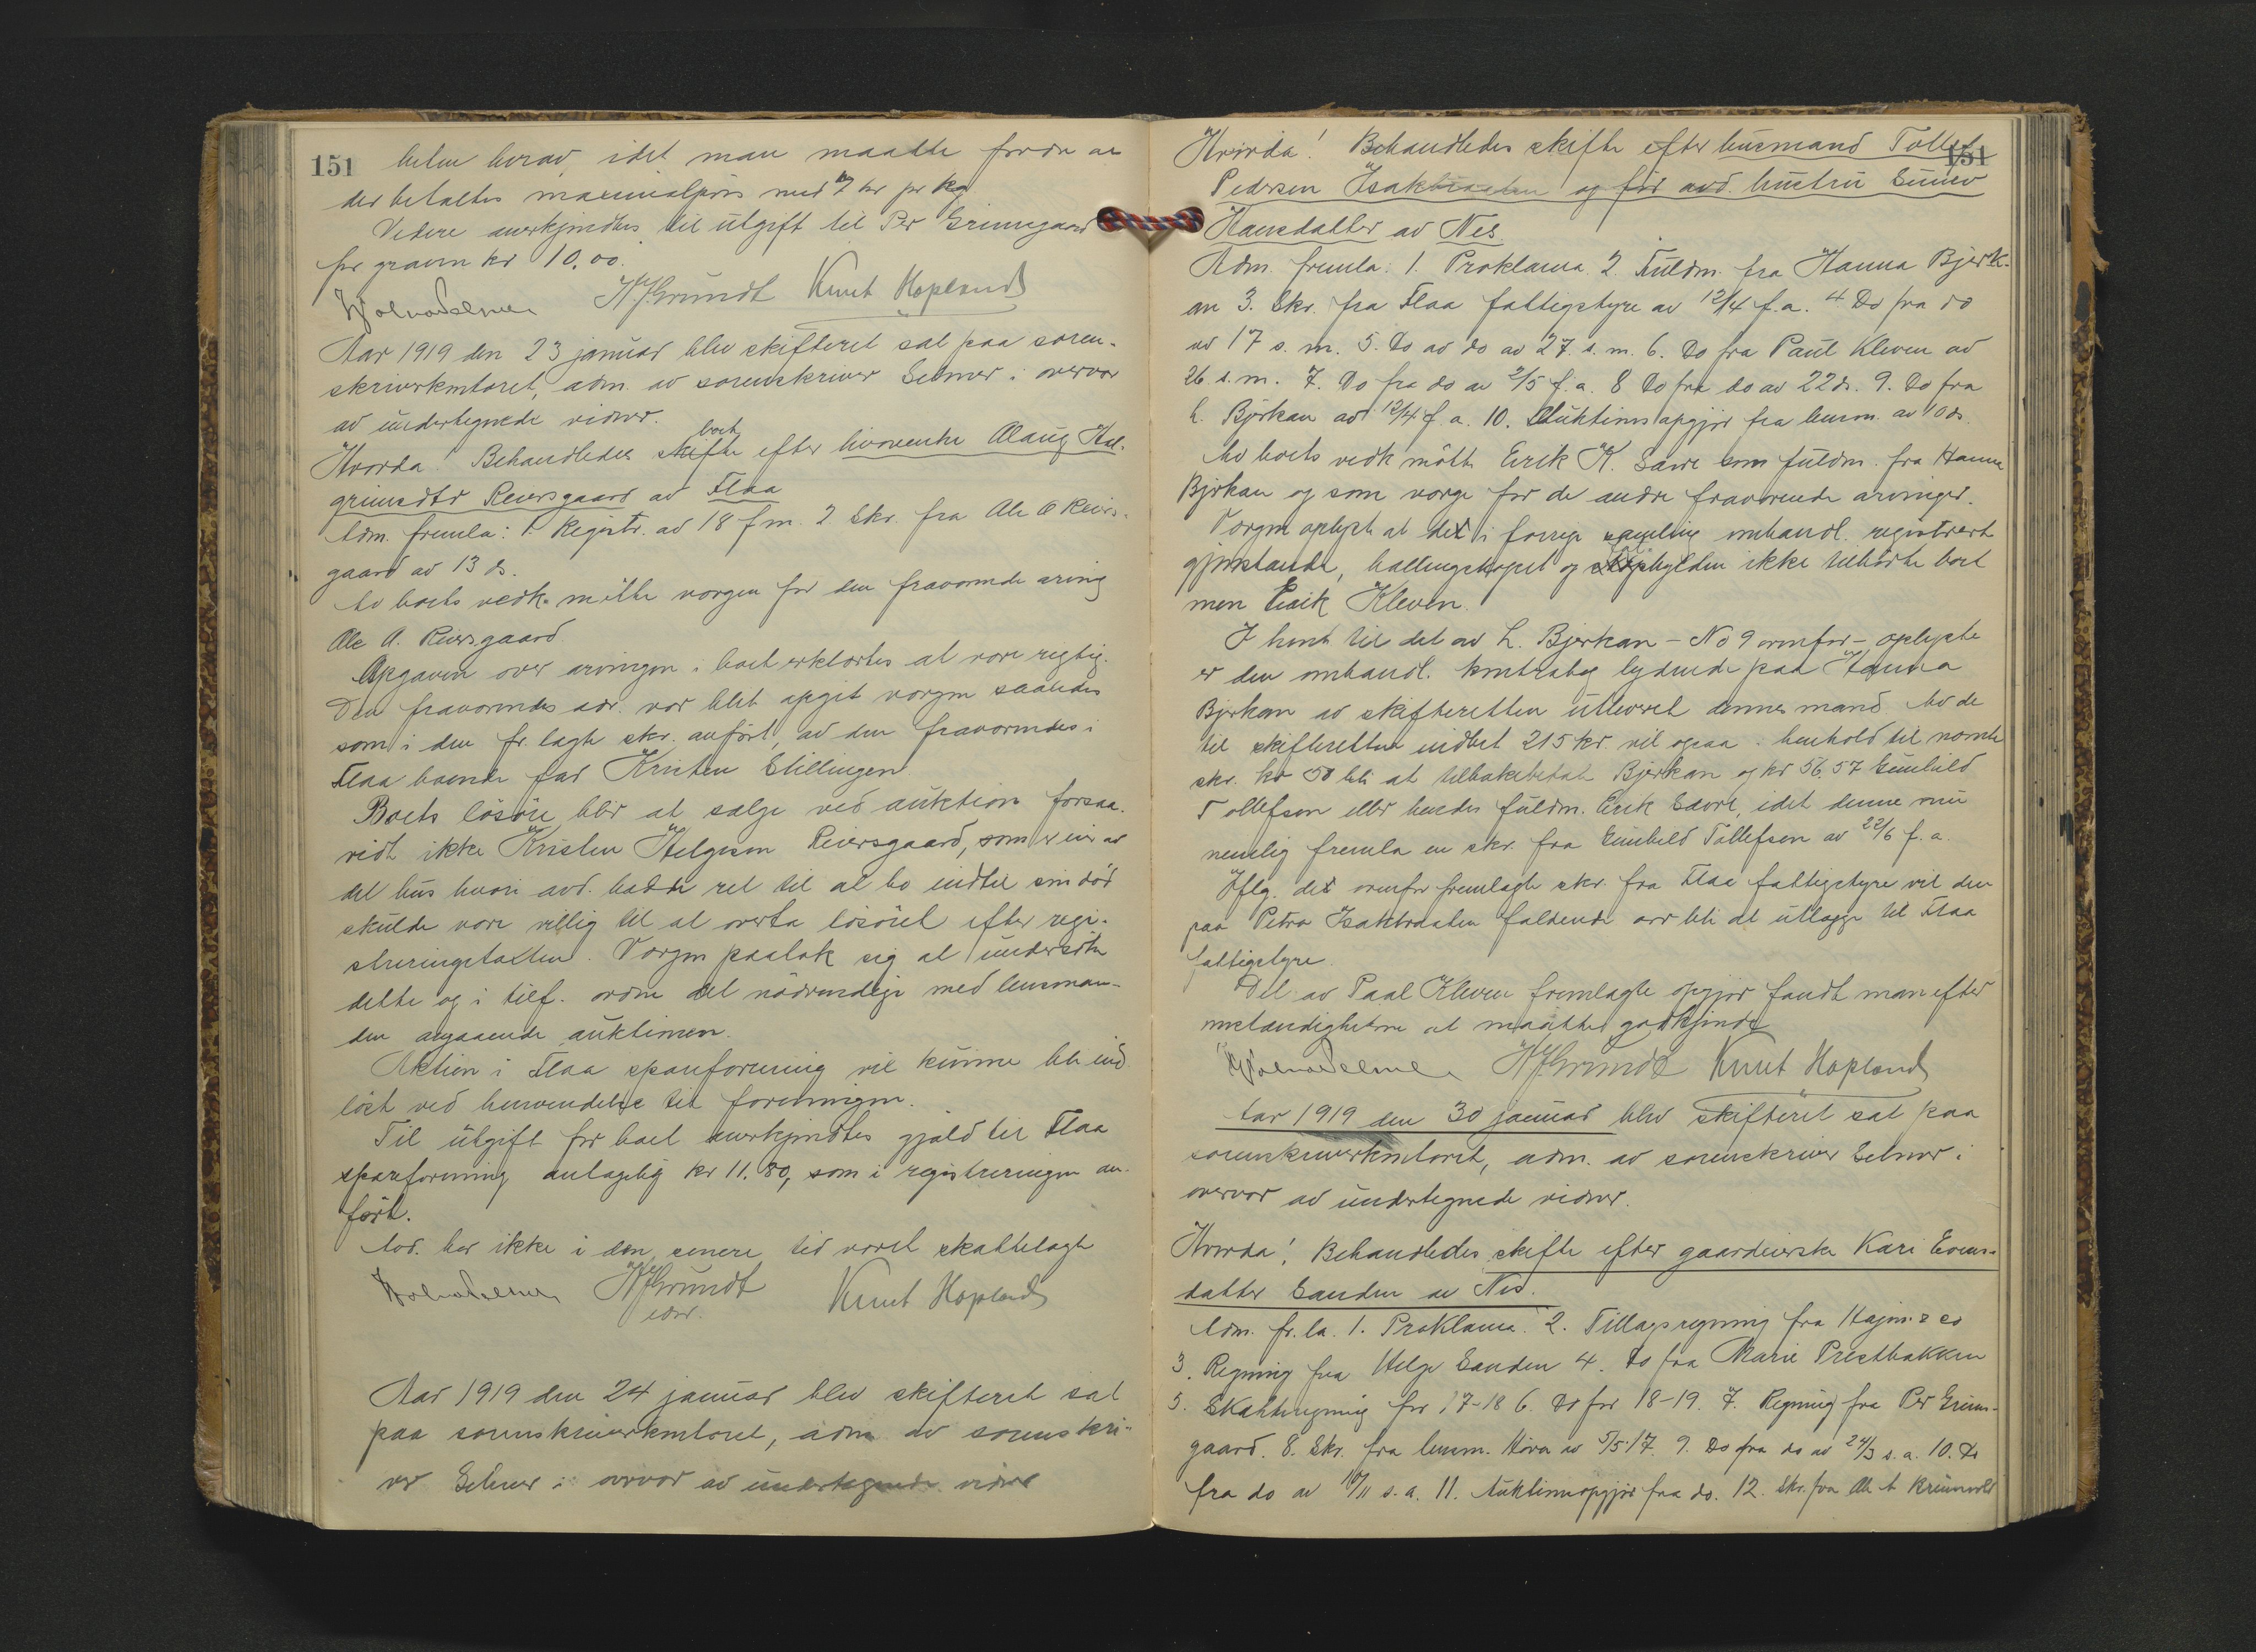 151
belen herav, idet man maatte
der betaltes maximalpris med 7 kr pr kg
Videre anerkjendtes til utgift til Per Grimsgaard
for graven kr 10.00.
HJGrundt Knut Hopland
Aar 1919 den 23 januar blev skifteret sat paa soren-
skriverkontoret, adm. av sorenskriver Selmer i overvær
av undertegnede vidner.
Hvorda! Behandledes skifte boet efter Olaug Hal-
grimsdtr Reiersgaard av Flaa
Adm. fremla: 1. Registr. av 18 f.m. 2 Skr. fra Ole A Reiers-
gaard av 13 ds.
Av boets vedk. mötte vergen for den fraværende arving
Ole A. Reiersgaard.
Opgaven over arvingen i boet erklærtes at være rigtig.
Den fraværendes adr. var blit opgit vergen saaledes
som i den fr.lagte skr. anfört, av den fraværendes i
Flaa boende far Kristen Stillingen
Boets lösöre blir at sælge ved auktion forsaa-
vidt ikke Kristen Helgesen Reiersgaard, som er eier av
det hus hvori avd. hadde ret til at bo indtil sin död
skulde være villig til at overta lösöret efter regi-
streringstaksten. Vergen paatok sig at undersöke
dette og i tilf. ordne det nödvendige med lensman-
den angaaende auktionen.
Aktien i Flaa spareforening vil kunne bli ind-
löst ved henvendelse til foreningen.
Til utgift for boet anerkjendtes gjæld til Flaa
spareforening antagelig kr 11.80, som i registreringen an-
fört.
Avd. har ikke i den senere tid været skattelagt
HJGrundt Knut Hopland
Aar 1919 den 24 januar blev skifteret sat
paa sorenskriverkontoret, adm. av sorenskri-
ver Selmer i overvær av undertegnede vidner
151
Hvorda! Behandledes skifte efter husmand Tollef
Pedersen Isakbraaten og för avd. hustru Sunev
Hansdatter av Nes
Adm. fremla: 1. Proklama 2. Fuldm. fra Hanna Bjerk-
an 3. Skr. fra Flaa fattigstyre av 12/4 f.a. 4 Do fra do
av 17 s.m. 5. Do av do av 27. s.m. 6. Do fra Paul Kleven av
26 s.m. 7. Do fra do av 2/5 f.a. 8 Do fra do av 22 ds. 9. Do fra
L. Björkan av 12/4 f.a. 10. Auktionsopgjör fra lensm. av 10 ds.
Av boets vedk mötte Erik K. Sævre som fuldm. fra Hanna
Björkan og som verge for de andre fraværende arvinger.
Vergen oplyste at det i forrige samling omhandl. registrert
gjenstande, hallingskapet og ikke tilhörte boet
men Erik Kleven.
I henh. til det av L. Bjerkan - No 9 ovenfor - oplyste
er den omhandl. kontrabog lydende paa Hanna
Bjerkan av skifteretten utleveret dennes mand Av de
til skifteretten indbet 215 kr. vil ogsaa i henhold til nævnte
skr. kr 50 bli at tilbakebetale Bjerkan og kr 56,57 Gunhild
Tollefsen eller hendes fuldm. Erik Sævre, idet denne nu
nemlig fremla en skr. fra Gunhild Tollefsen av 22/6 f.a.
Iflg. det ovenfor fremlagte skr. fra Flaa fattigstyre vil den
paa Petra Isakbraaten faldende arv bli at utlægge til Flaa
fattigstyre.
Det av Paal Kleven fremlagte opgjör fandt man efter
omstændigheterne at maatte godkjende
HJGrundt Knut Hopland
Aar 1919 den 30 januar blev skifteret sat paa
sorenskriverkontoret, adm. av sorenskriver Selmer i
overvær av undertegnede vidner.
Hvorda! Behandledes skifte efter gaardeierske Kari Evens-
datter Sanden av Nes.
Adm. fr.la. 1. Proklama. 2. Tillægsregning fra
3. Regning fra Helge Sanden 4. Do fra Marie Prestbakken
5. Skatteregning for 17-18 6. Do for 18-19. 7. Regning fra Per Grims-
gaard. 8. Skr. fra lensm. av 5/5 17. 9. Do fra do av 24/3 s.a. 10. Do
fra do av 17/11 s.a. 11. Auktionsopgjör fra do. 12. Skr. fra